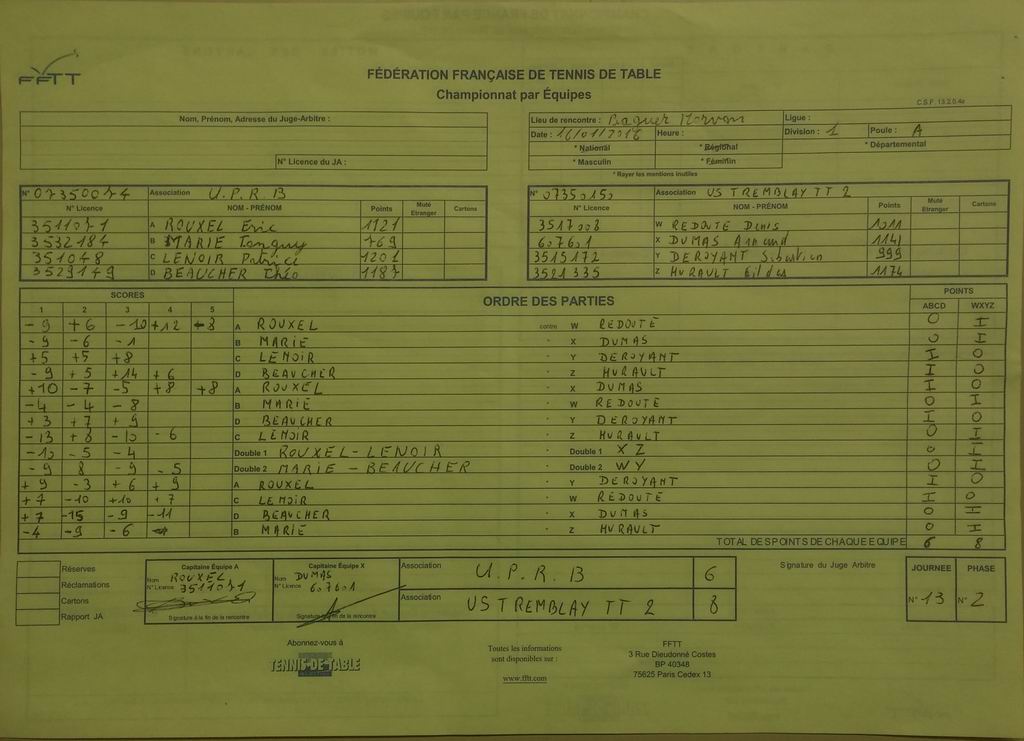 FFTT
FÉDÉRATION FRANÇAISE DE TENNIS DE TABLE
Championnat par Équipes
C.S.F. 13.2.0.4a
Nom, Prénom, Adresse du Juge-Arbitre :
N° Licence du JA :
Lieu de rencontre : Baguer Morvan Ligue :
Date : 16/01/2016 Heure : Division : 1 Poule : A
* National * Régional * Départemental
* Masculin * Féminin
* Rayer les mentions inutiles
N° 07350074 Association U.P.R.B
N° Licence NOM - PRÉNOM Points Muté Etranger Cartons
3511071 A ROUXEL Eric 1121
3532184 B MARIE Tanguy 769
351048 C LENOIR Patrice 1201
3529149 D BEAUCHER Théo 1187
N° 0735015 Association US TREMBLAY TT 2
N° Licence NOM - PRÉNOM Points Muté Etranger Cartons
3517008 W REDOUTE Denis 1011
607601 X DUMAS Armand 1141
3515172 Y DEROYANT Sébastien 999
3521335 Z HURAULT Gildas 1174
SCORES ORDRE DES PARTIES POINTS
1 2 3 4 5 ABCD WXYZ
-9 +6 -10 +12 -8 A ROUXEL contre W REDOUTÉ 0 I
-9 -6 -1 B MARIE - X DUMAS 0 I
+5 +5 +8 C LENOIR - Y DEROYANT I 0
-9 +5 +14 +6 D BEAUCHER - Z HURAULT I 0
+10 -7 -5 +8 +8 A ROUXEL - X DUMAS I 0
-4 -4 -8 B MARIE - W REDOUTE 0 I
+3 +7 +9 D BEAUCHER - Y DEROYANT I 0
-13 +8 -10 -6 C LENOIR - Z HURAULT 0 I
-10 -5 -4 Double 1 ROUXEL - LENOIR - Double 1 X Z 0 I
-9 8 -9 -5 Double 2 MARIE - BEAUCHER - Double 2 W Y 0 I
+9 -3 +6 +9 A ROUXEL - Y DEROYANT I 0
+7 -10 +10 +7 C LENOIR - W REDOUTE I 0
+7 -15 -9 -11 D BEAUCHER - X DUMAS 0 I
-4 -9 -6 B MARIE - Z HURAULT 0 I
TOTAL DES POINTS DE CHAQUE EQUIPE 6 8
Réserves
Réclamations
Cartons
Rapport JA
Capitaine Équipe A
Nom ROUXEL
N° Licence 3511071
Signature à la fin de la rencontre
Capitaine Équipe X
Nom DUMAS
N° Licence 607601
Signature à la fin de la rencontre
Association U.P.R.B 6
Association US TREMBLAY TT 2 8
Signature du Juge Arbitre
JOURNEE PHASE
N° 13 N° 2
Abonnez-vous à
TENNIS DE TABLE
Toutes les informations
sont disponibles sur :
www.fftt.com
FFTT
3 Rue Dieudonné Costes
BP 40348
75625 Paris Cedex 13